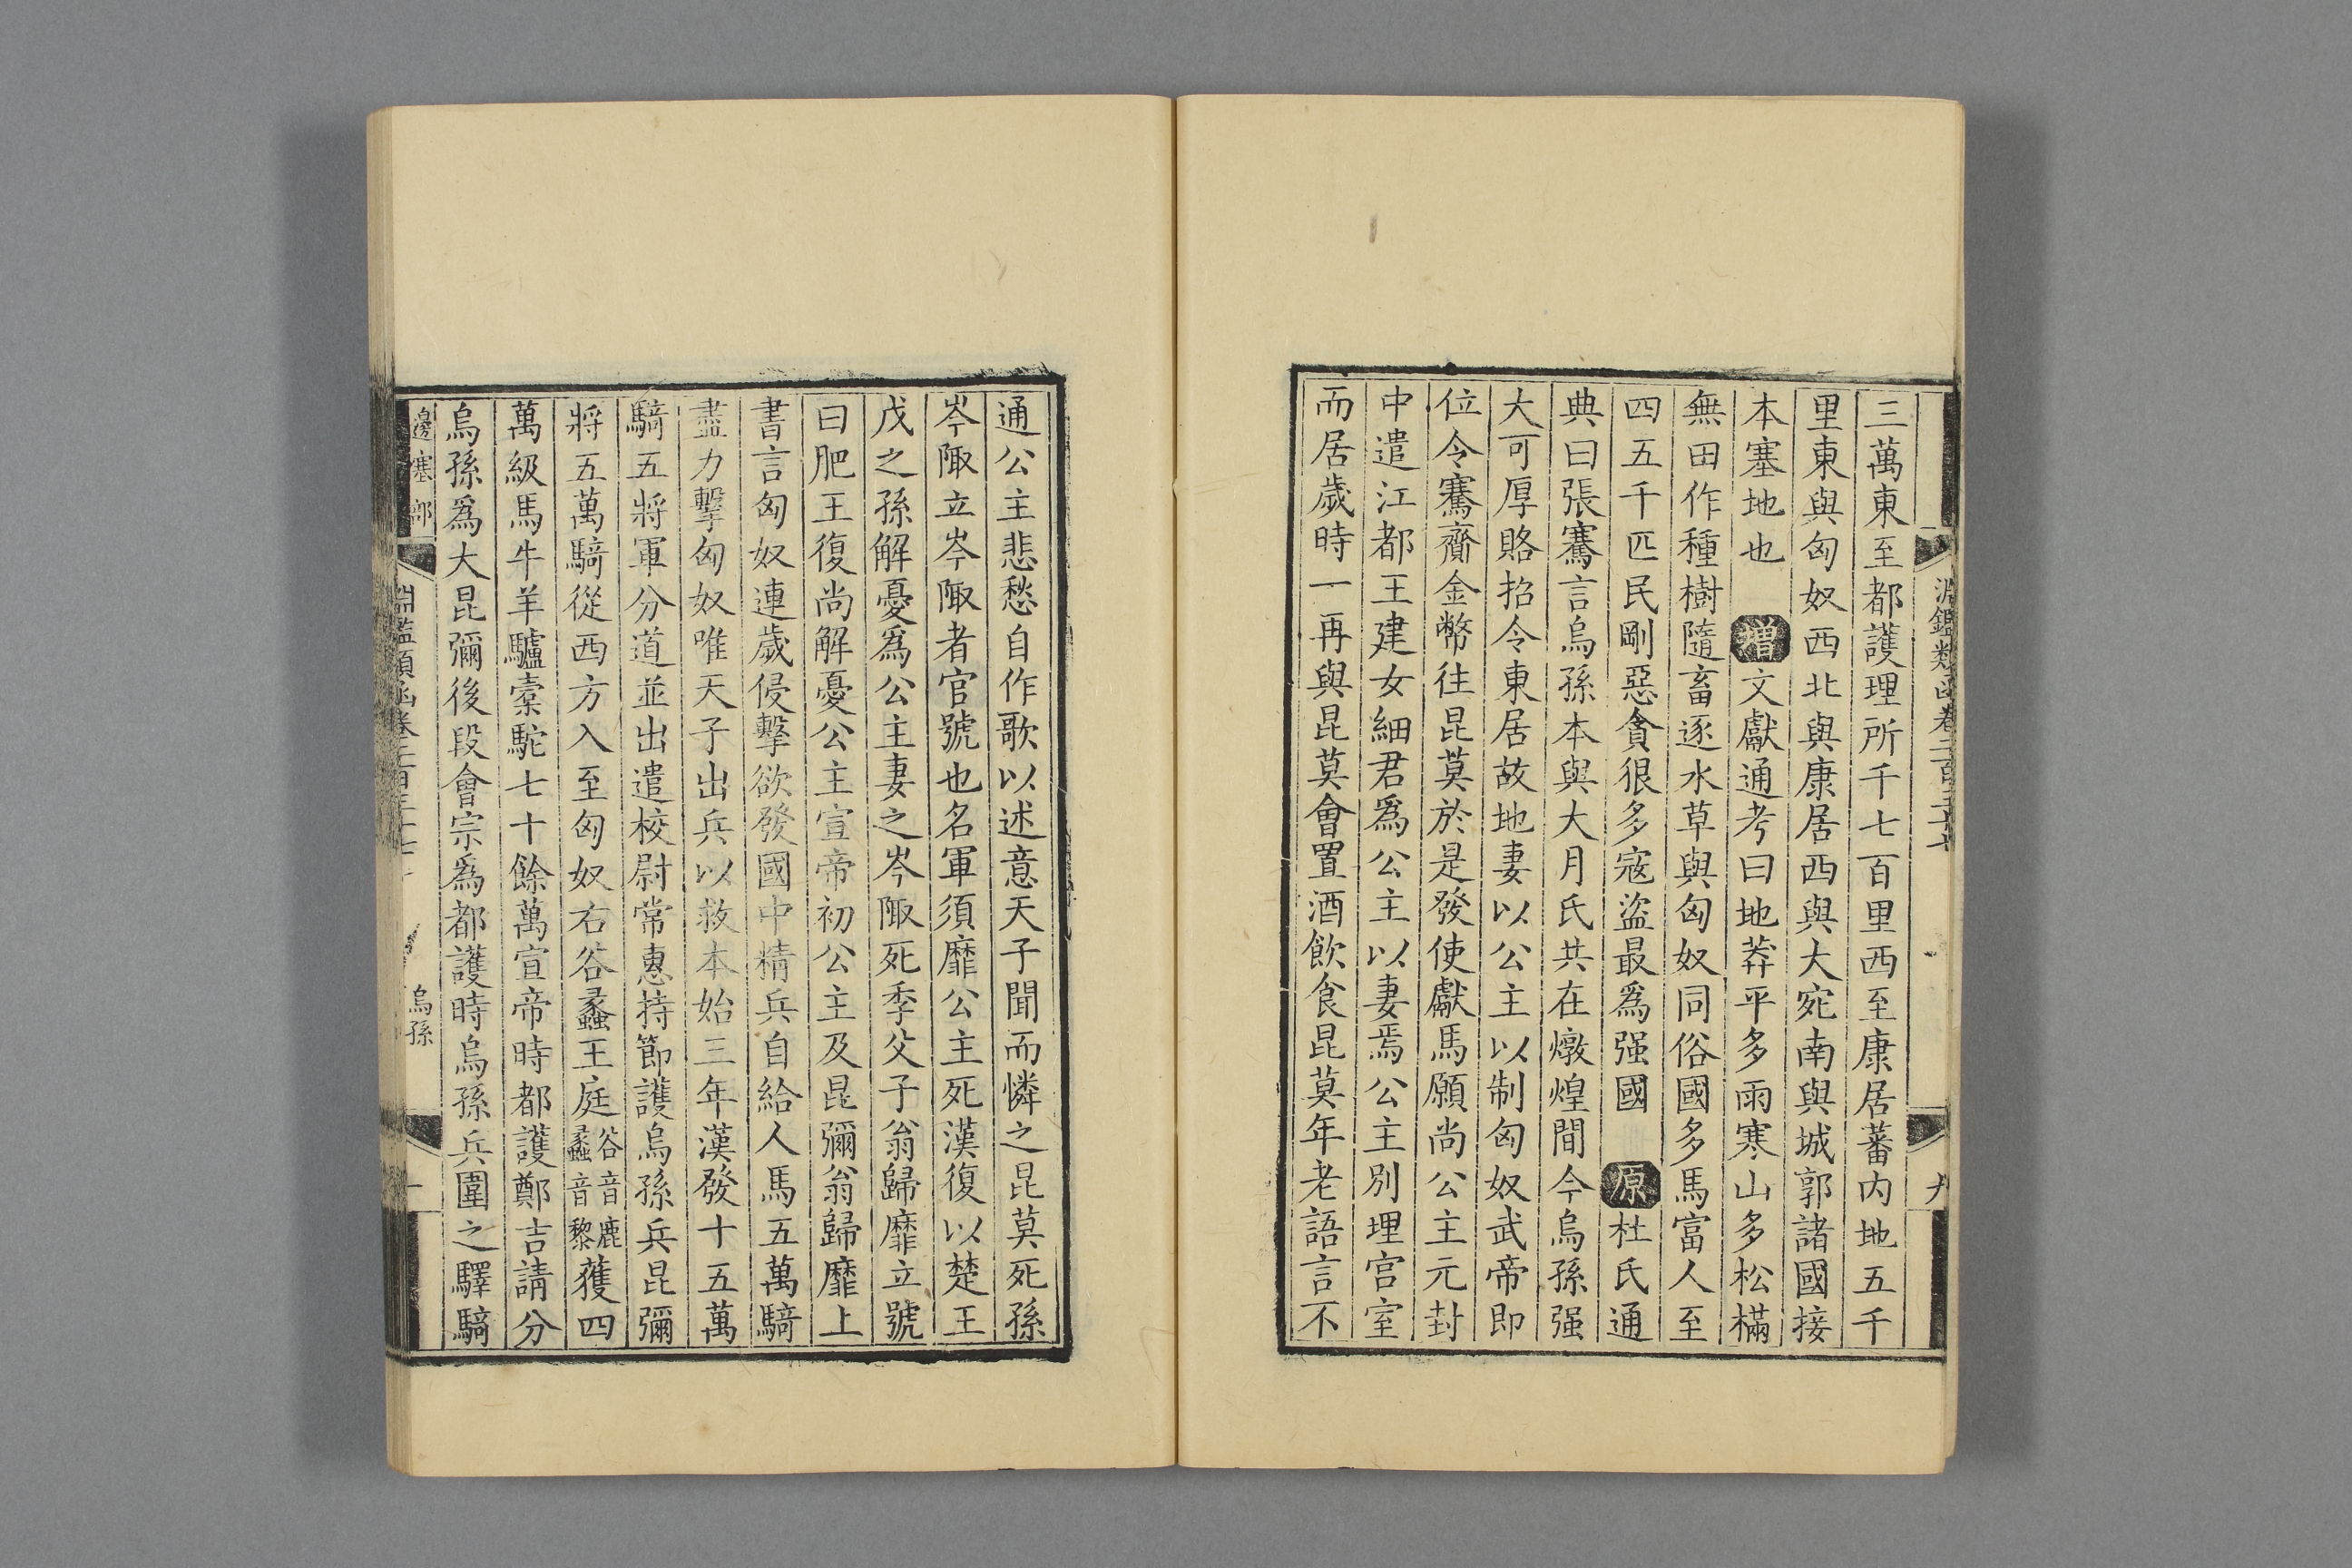 三萬東至都護理所千七百里西至康居蕃內地五千
里東與匈奴西北與康居西與大宛南與城郭諸國接
本塞地也 增文獻通考曰地莽平多雨寒山多松樠
無田作種樹隨畜逐水草與匈奴同俗國多馬富人至
四五千匹民剛惡貪狠多寇盜最爲强國 原杜氏通
典曰張騫言烏孫本與大月氏共在燉煌間今烏孫强
大可厚賂招令東居故地妻以公主以制匈奴武帝即
位令騫齎金幣往昆莫於是發使獻馬願尚公主元封
中遣江都王建女細君爲公主以妻焉公主別理宮室
而居歲時一再與昆莫會置酒飲食昆莫年老語言不
通公主悲愁自作歌以述意天子聞而憐之昆莫死孫
岑陬立岑陬者官號也名軍須靡公主死漢復以楚王
戊之孫解憂爲公主妻之岑陬死季父子翁歸靡立號
曰肥王復尚解憂公主宣帝初公主及昆彌翁歸靡上
書言匈奴連歲侵擊欲發國中精兵自給人馬五萬騎
盡力擊匈奴唯天子出兵以救本始三年漢發十五萬
騎五將軍分道並出遣校尉常惠持節護烏孫兵昆彌
將五萬騎從西方入至匈奴右谷蠡王庭谷音鹿蠡音黎獲四
萬級馬牛羊驢橐駝七十餘萬宣帝時都護鄭吉請分
烏孫爲大昆彌後段會宗爲都護時烏孫兵圍之驛騎
邊塞部 淵鑑類函卷二百三十七 烏孫